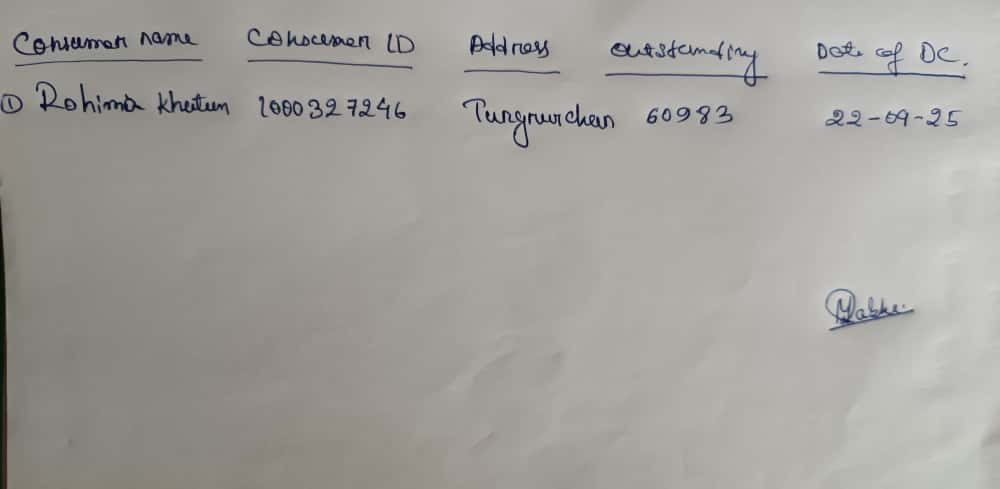 Consumer name Consumer ID Address Outstanding Date of DC.
① Rohima Khatun 1000327246 60983 22-09-25